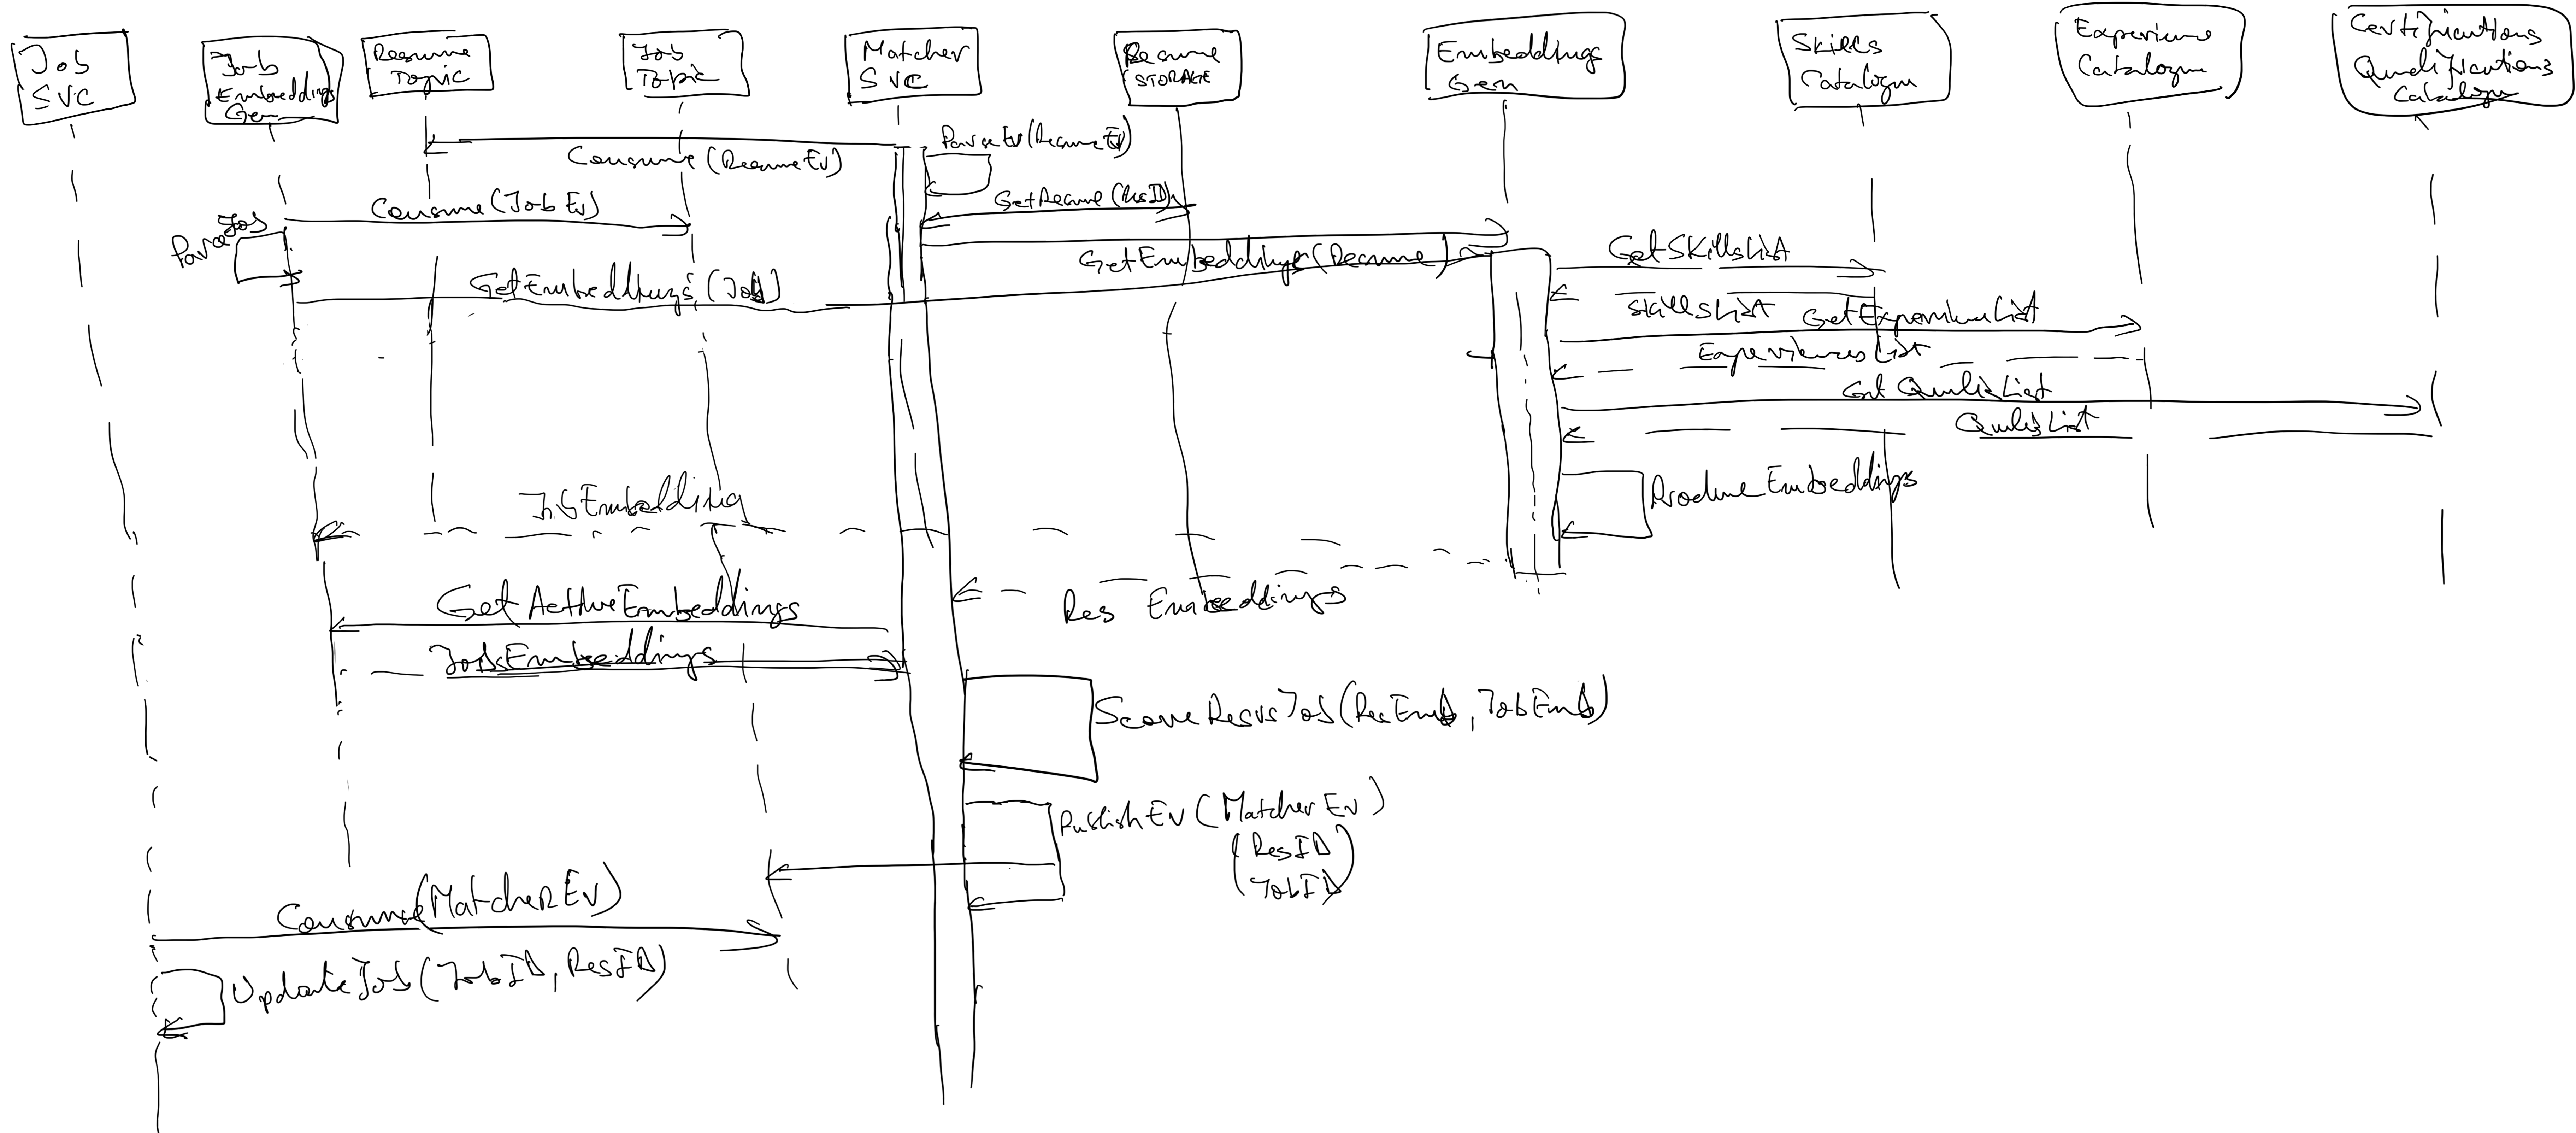 Job
SVC
Job
Embeddings
Gen
Resume
Topic
Job
Topic
Matcher
SVC
Resume
STORAGE
Embeddings
Gen
Skills
Catalogue
Experience
Catalogue
Certifications
Qualifications
Catalogue
Consume (ResumeEv)
ParseEv (ResumeEv)
GetResume (ResID)
Consume (JobEv)
ParseJob
GetEmbeddings (Resume)
GetEmbeddings (Job)
GetSkillsList
SkillsList
GetExperienceList
ExperiencesList
Get QualisList
QualisList
ProduceEmbeddings
JobEmbedding
Res Embeddings
Get ActiveEmbeddings
JobsEmbeddings
ScoreResvsJob (ResEmb, JobEmb)
PublishEv (MatcherEv)
(ResID
JobID)
Consume (MatcherEv)
UpdateJob (JobID, ResID)